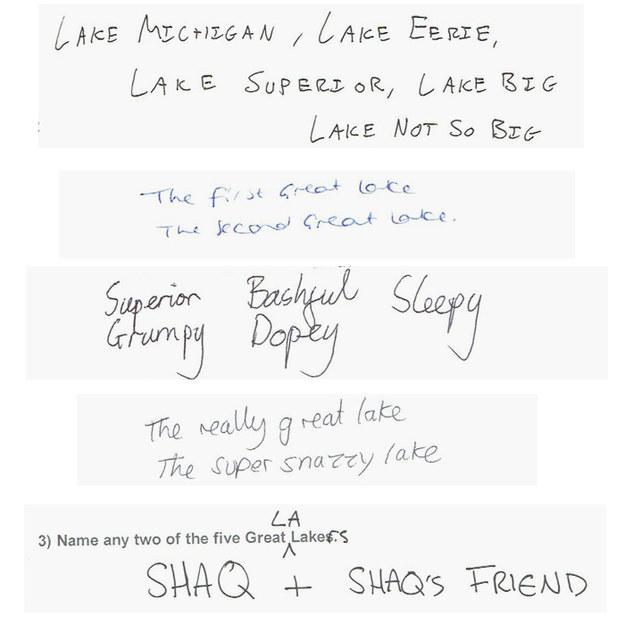 LAKE MICHIGAN, LAKE EERIE,
LAKE SUPERIOR, LAKE BIG
LAKE NOT SO BIG
The first Great lake
The second Great Lake.
Superior Bashful Sleepy
Grumpy Dopey
The really great lake
The super snazzy lake
LA
3) Name any two of the five Great Lakers
SHAQ + SHAQ'S FRIEND